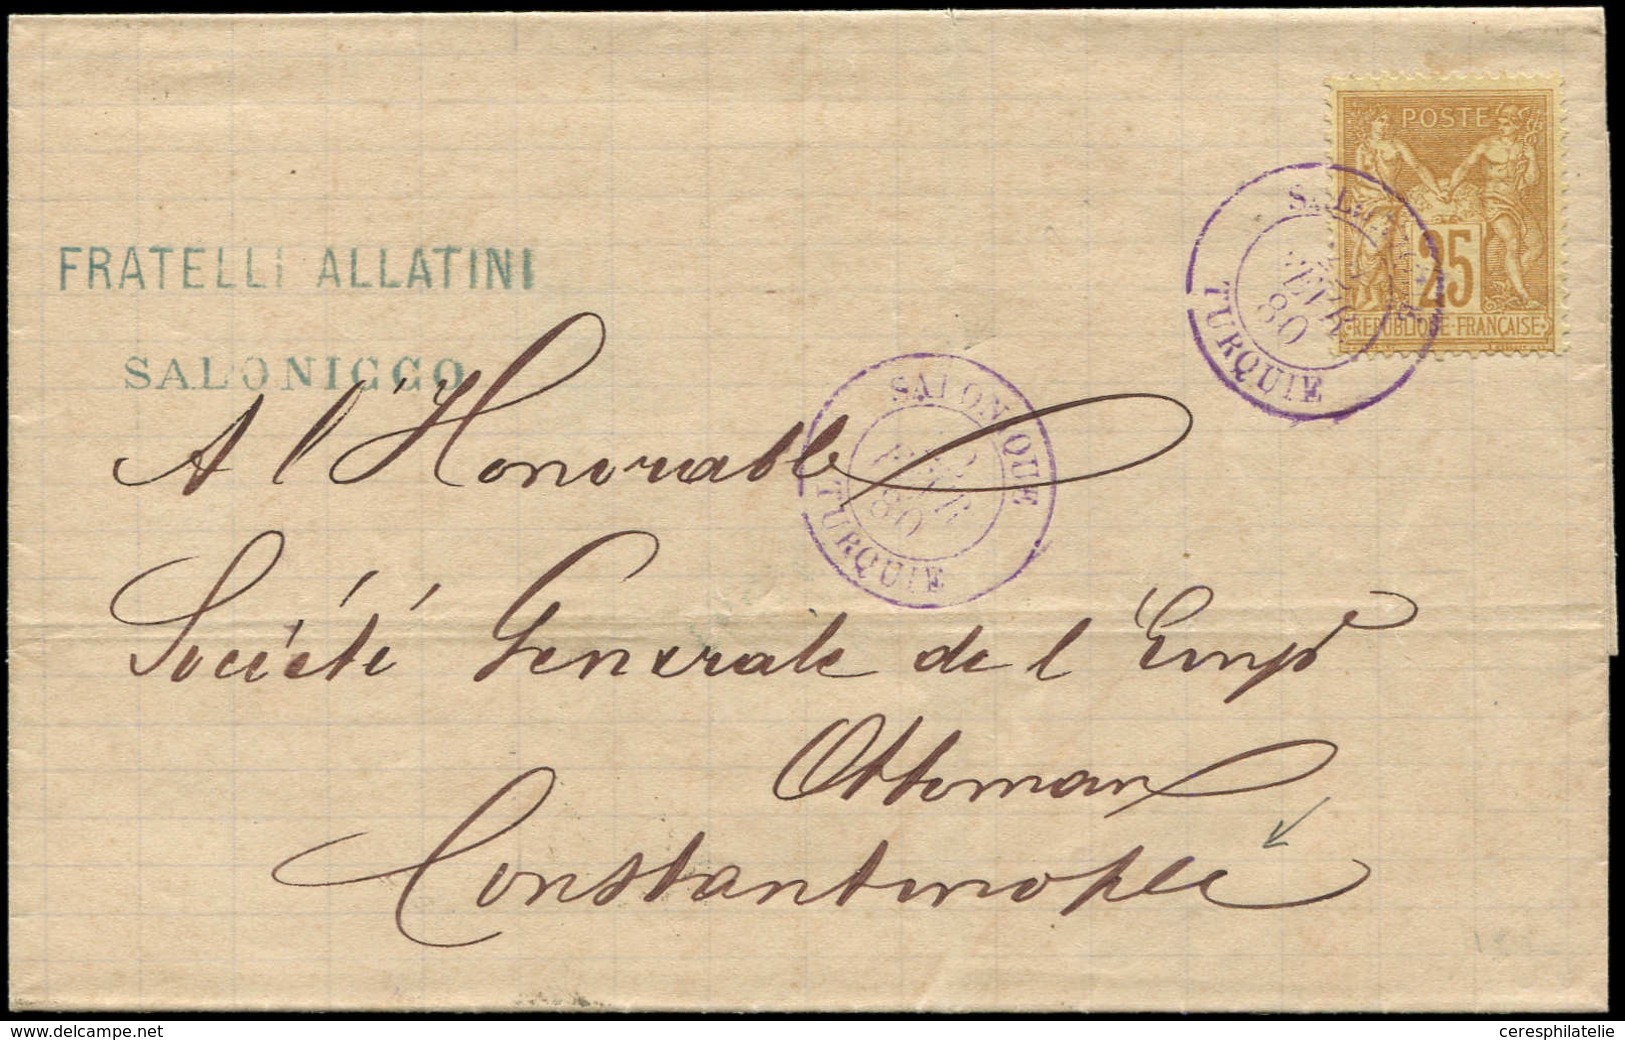 POSTE
25
REPUBLIQUE FRANÇAISE
TURQUIE
80
FRATELLI ALLATINI
SALONICCO
SALONIQUE
FEVR
80
TURQUIE
A l'Honorable
Société Generale de l'Emp^e
Ottoman
Constantinople
www.delcampe.net
ceresphilatelie